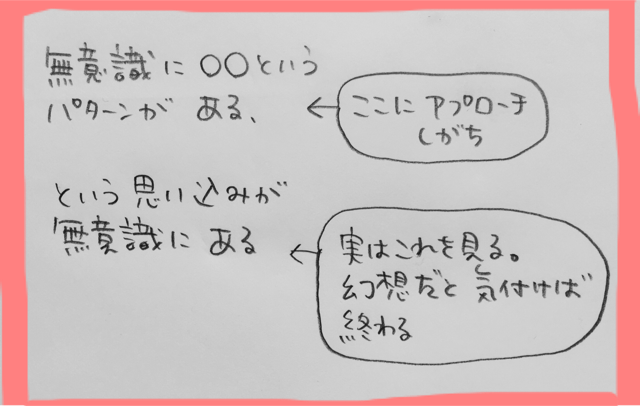 無意識に〇〇という
パターンが ある、
ここに アプローチ
しがち
という 思い込みが
無意識に ある
実はこれを見る。
幻想だと 気付けば
終わる